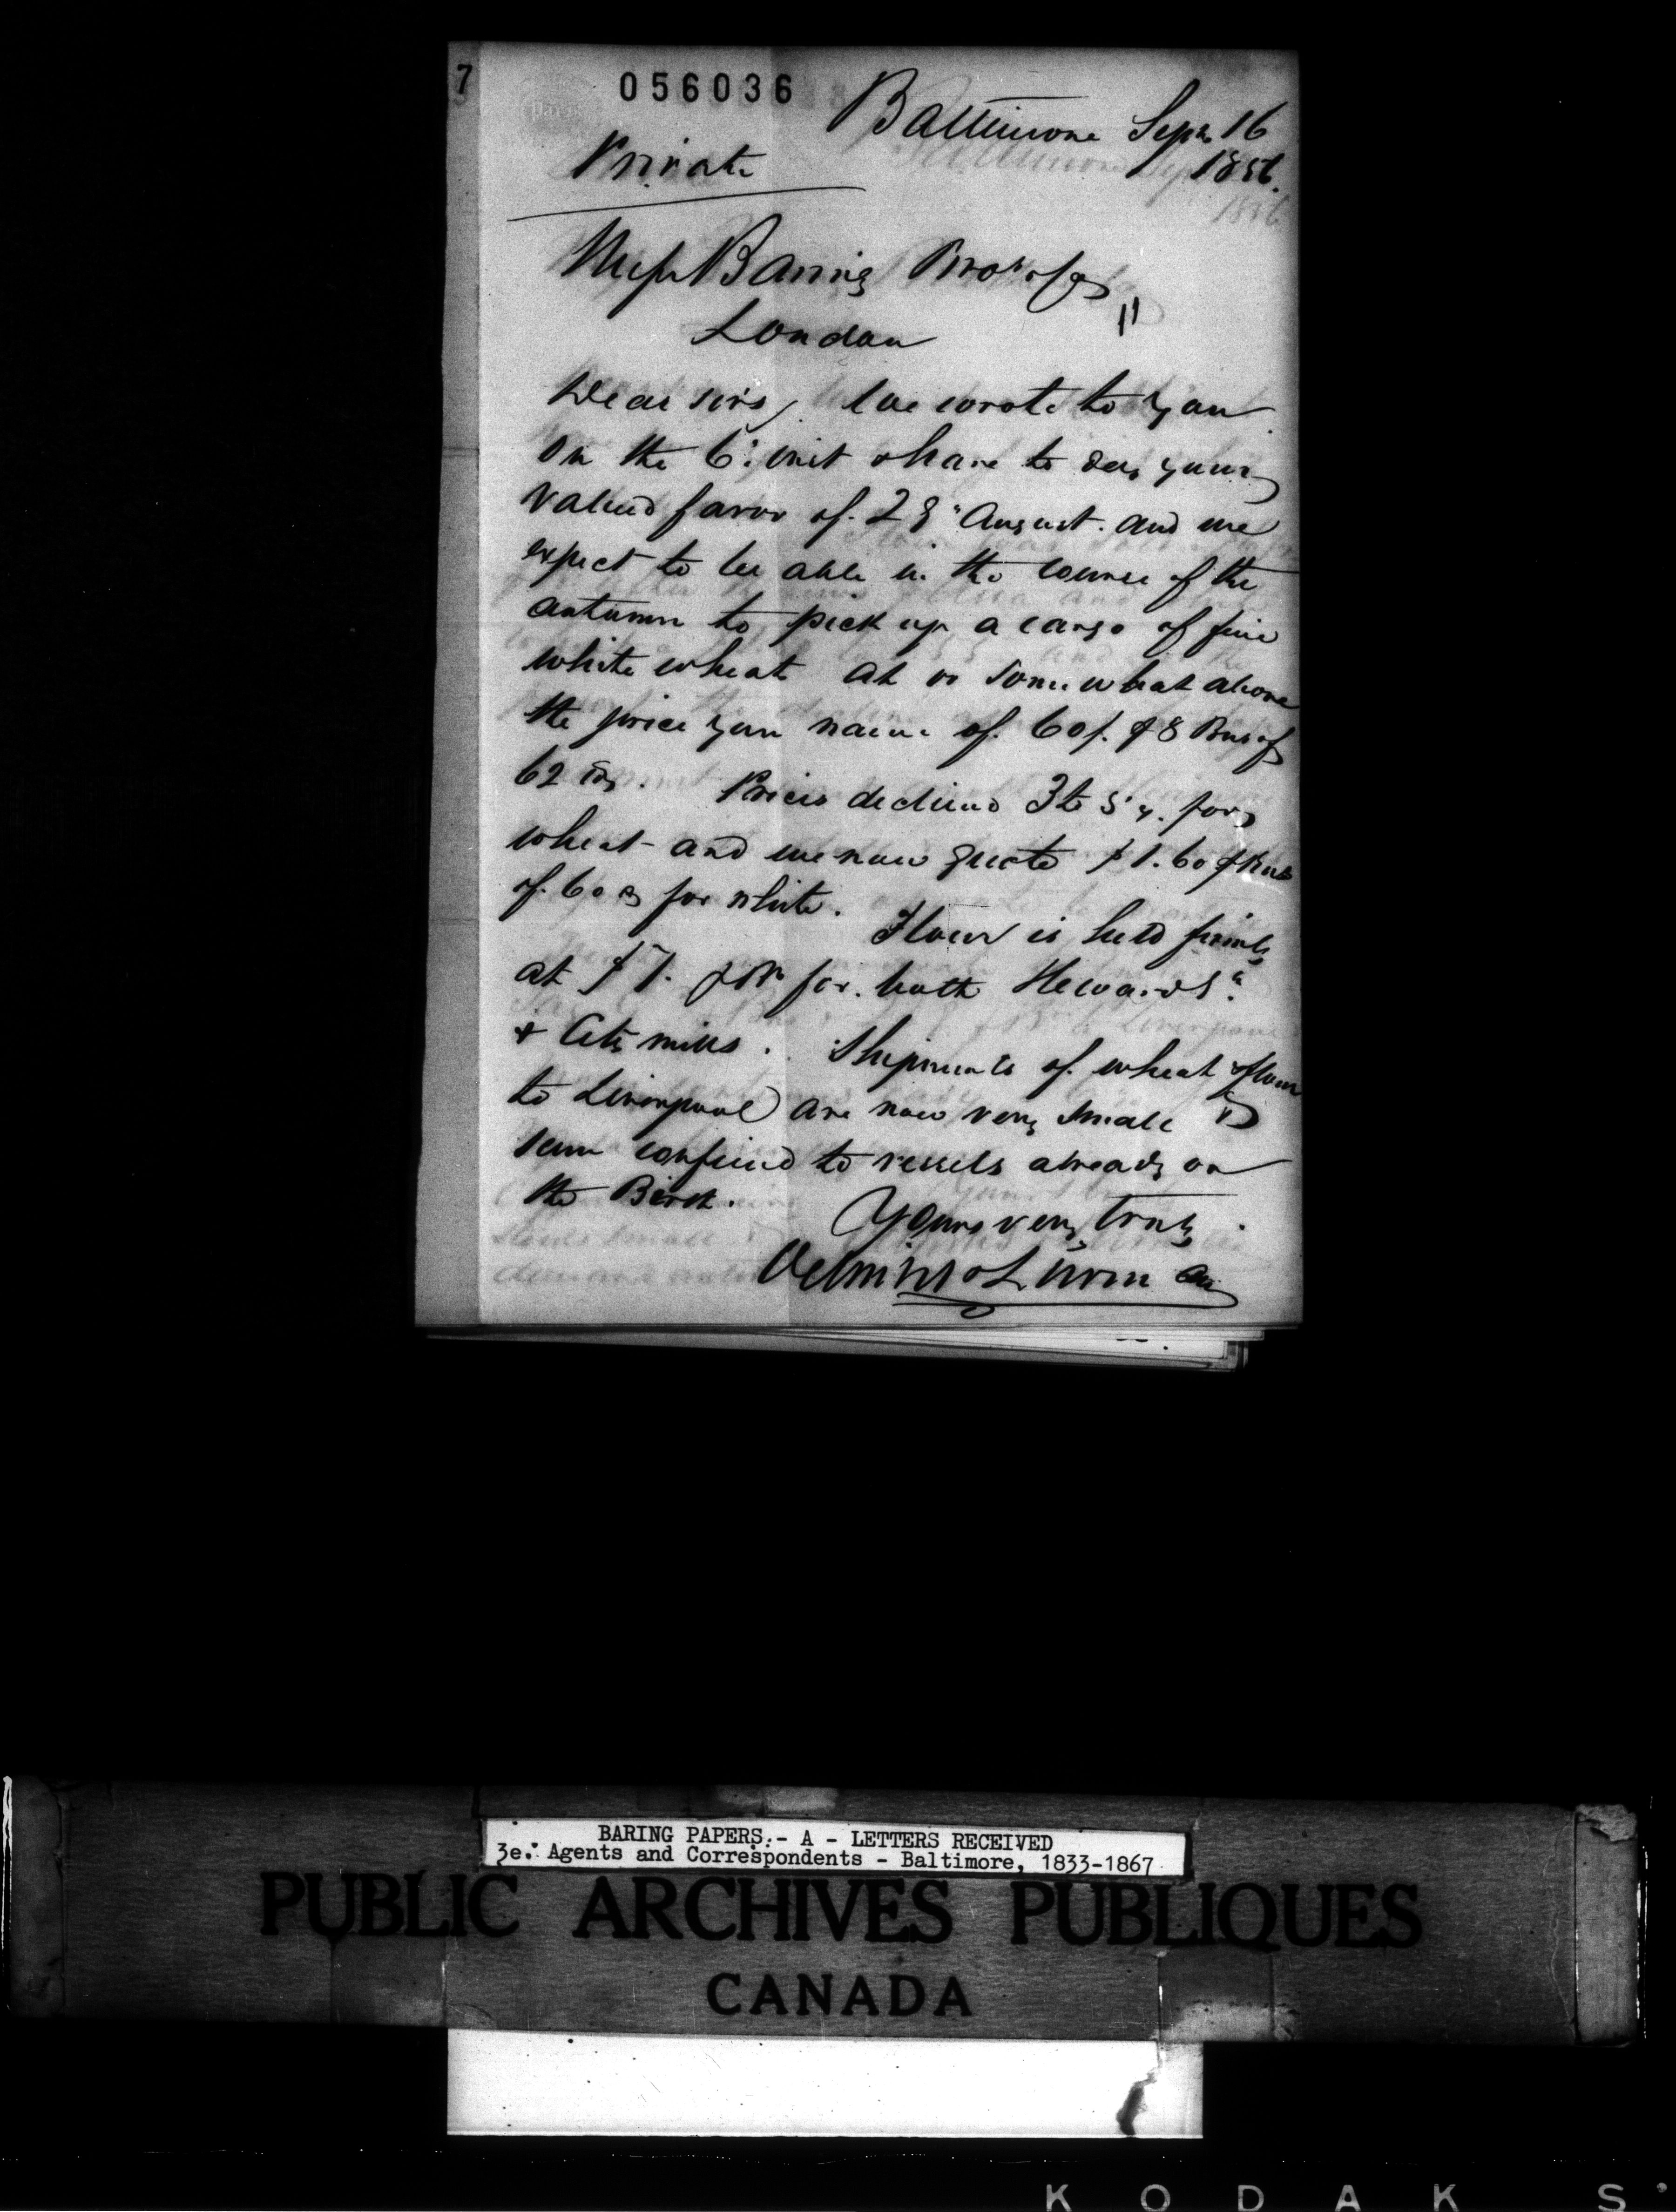 7
056036
Baltimore Sepr. 16
1856.
Private
Messrs Baring Bros & Co
London
Dear Sirs, We wrote to you
on the 6" inst & have to day your
valued favor of 28" August. and we
expect to be able in the course of the
autumn to pick up a cargo of fine
white wheat at or somewhat above
the price you name of 60/. ⅌ 8 Bus of
62 lbs. Prices declined 3 to 5 ¢. for
wheat and we now quote $1.60 ⅌ Bus
of 60 lbs for white. Flour is held firmly
at $7. for both Howard St.
& City mills. Shipments of wheat & flour
to Liverpool are now very small &
seem confined to vessels already on
the Berth.
Yours very truly
BARING PAPERS.- A - LETTERS RECEIVED
3e. Agents and Correspondents - Baltimore, 1833-1867
PUBLIC ARCHIVES PUBLIQUES
CANADA
KODAK S